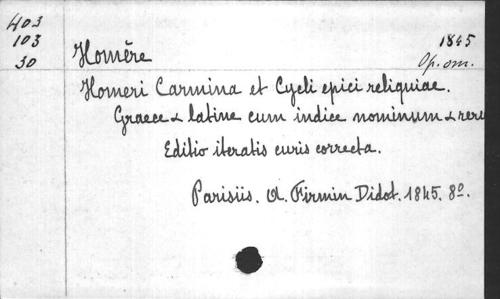 403
103
30
Homère
1845
Op. om.
Homeri Carmina et Cycli epici reliquiae.
Graece & latine cum indice nominum & reru
Editio iteratis curis correcta.
Parisiis. A. Firmin Didot. 1845. 8º.